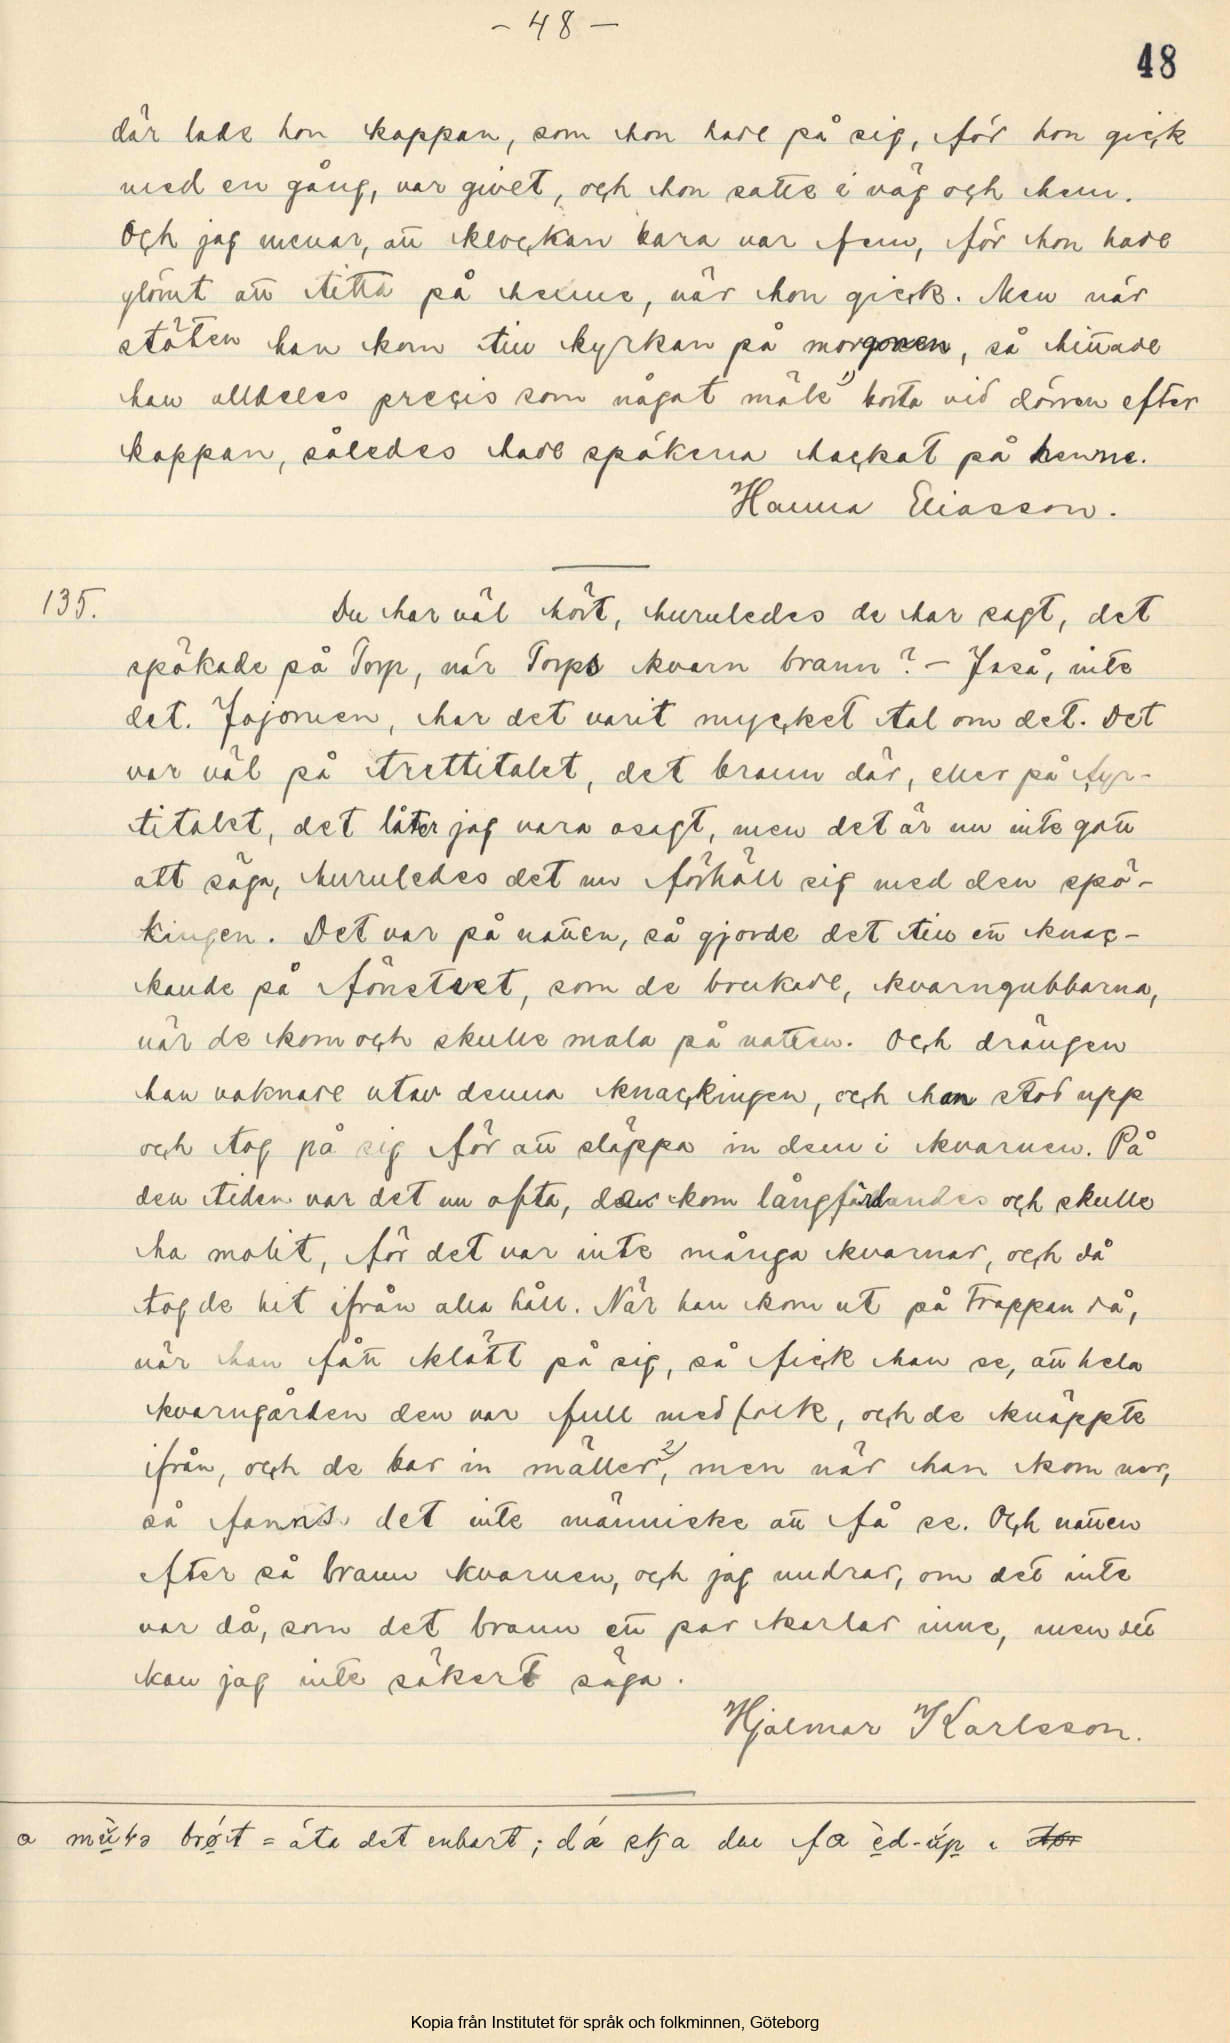 – 48 –
48
där lade hon kappan, som hon hade på sig, för hon gick
med en gång, var givet, och hon satte i väg och hem.
Och jag menar, att klockan bara var fem, för hon hade
glömt att titta på henne, när hon gick. Men när
stöten han kom till kyrkan på morgonen, så hittade
han alldeles precis som något mäle¹⁾ borta vid dörren efter
kappan, således hade spökena hackat på henne.
Hanna Eliasson.
135. Du har väl hört, huruledes de har sagt, det
spökade på Torp, när Torps kvarn brann? – Jaså, inte
det. Jojomen, har det varit mycket tal om det. Det
var väl på trettitalet, det brann där, eller på fyr-
titalet, det låter jag vara osagt, men det är nu inte gott
att säga, huruledes det nu förhöll sig med den spö-
kingen. Det var på natten, så gjorde det till ett knac-
kande på fönstret, som de brukade, kvarngubbarna,
när de kom och skulle mala på natten. Och drängen
han vaknade utav denna knackingen, och han stod upp
och tog på sig för att släppa in dem i kvarnen. På
den tiden var det nu ofta, de kom långfärdandes och skulle
ha malit, för det var inte många kvarnar, och då
tog de hit ifrån alla håll. När han kom ut på trappan då,
när han fått klätt på sig, så fick han se, att hela
kvarngården den var full med folk, och de knäppte
ifrån, och de bar in mäller²⁾, men när han kom ner,
så fanns det inte människe att få se. Och natten
efter så brann kvarnen, och jag undrar, om det inte
var då, som det brann ett par karlar inne, men det
kan jag inte säkert säga.
Hjalmar Karlsson.
brøt = äta det enbart; dä ska du få
Kopia från Institutet för språk och folkminnen, Göteborg